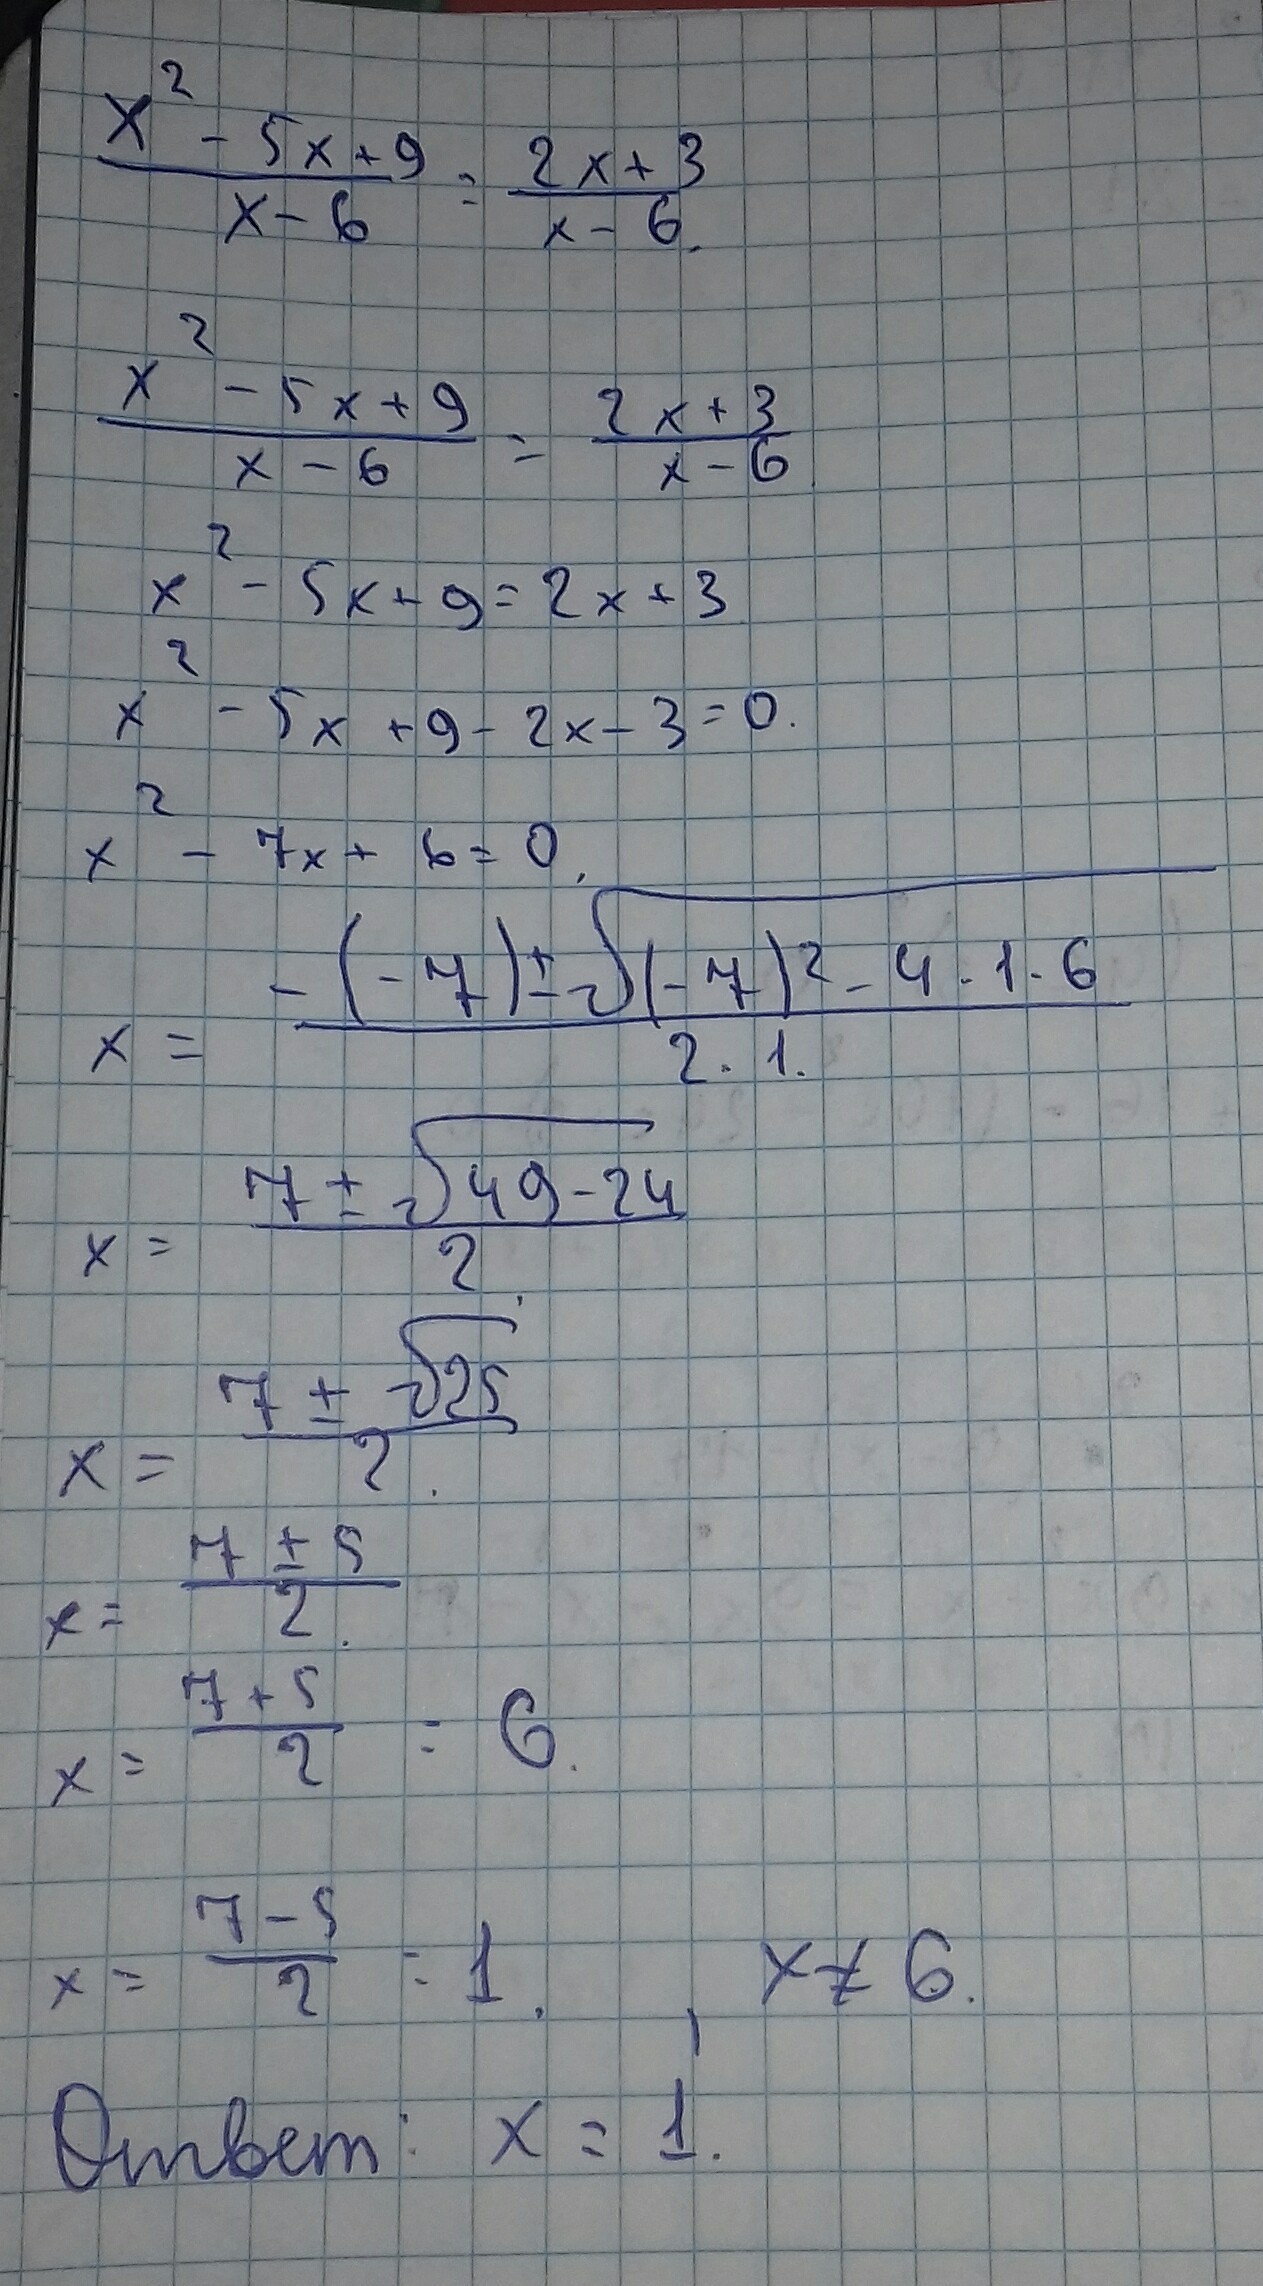 x² - 5x + 9 / x - 6 = 2x + 3 / x - 6.
x² - 5x + 9 / x - 6 = 2x + 3 / x - 6
x² - 5x + 9 = 2x + 3
x² - 5x + 9 - 2x - 3 = 0.
x² - 7x + 6 = 0,
x = -(-7) ± √(-7)² - 4 · 1 · 6 / 2 · 1.
x = 7 ± √49 - 24 / 2.
x = 7 ± √25 / 2.
x = 7 ± 5 / 2.
x = 7 + 5 / 2 = 6.
x = 7 - 5 / 2 = 1. , x ≠ 6.
Ответ: x = 1.